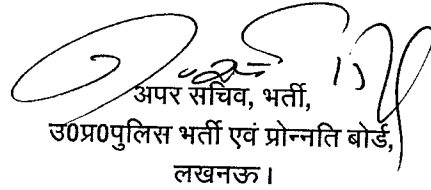 अपर सचिव, भर्ती,
उ0प्र0पुलिस भर्ती एवं प्रोन्नति बोर्ड,
लखनऊ।